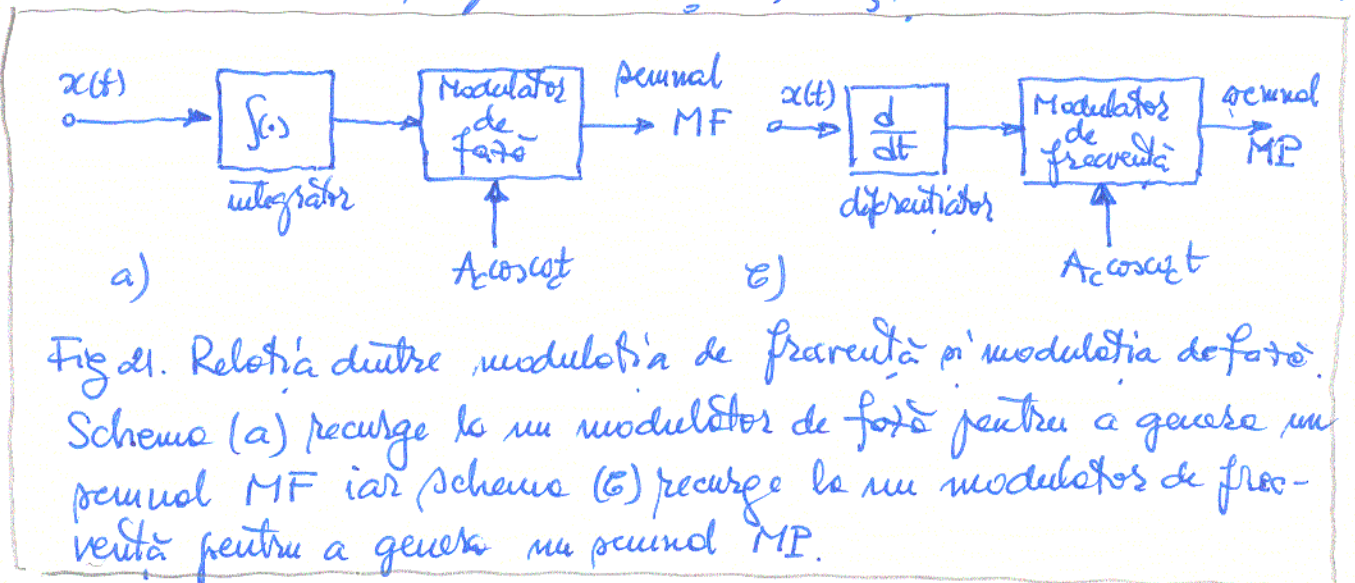 x(t)
∫(·)
integrator
Modulator
de
fază
semnal
MF
A_c cos ω_c t
a)
x(t)
d
dt
diferentiator
Modulator
de
frecventă
semnal
MP
A_c cos ω_c t
b)
Fig 21. Relatia dintre modulatia de frecventă si modulatia de fază.
Schema (a) recurge la un modulator de fază pentru a genera un
semnal MF iar schema (b) recurge la un modulator de frec-
ventă pentru a genera un semnal MP.